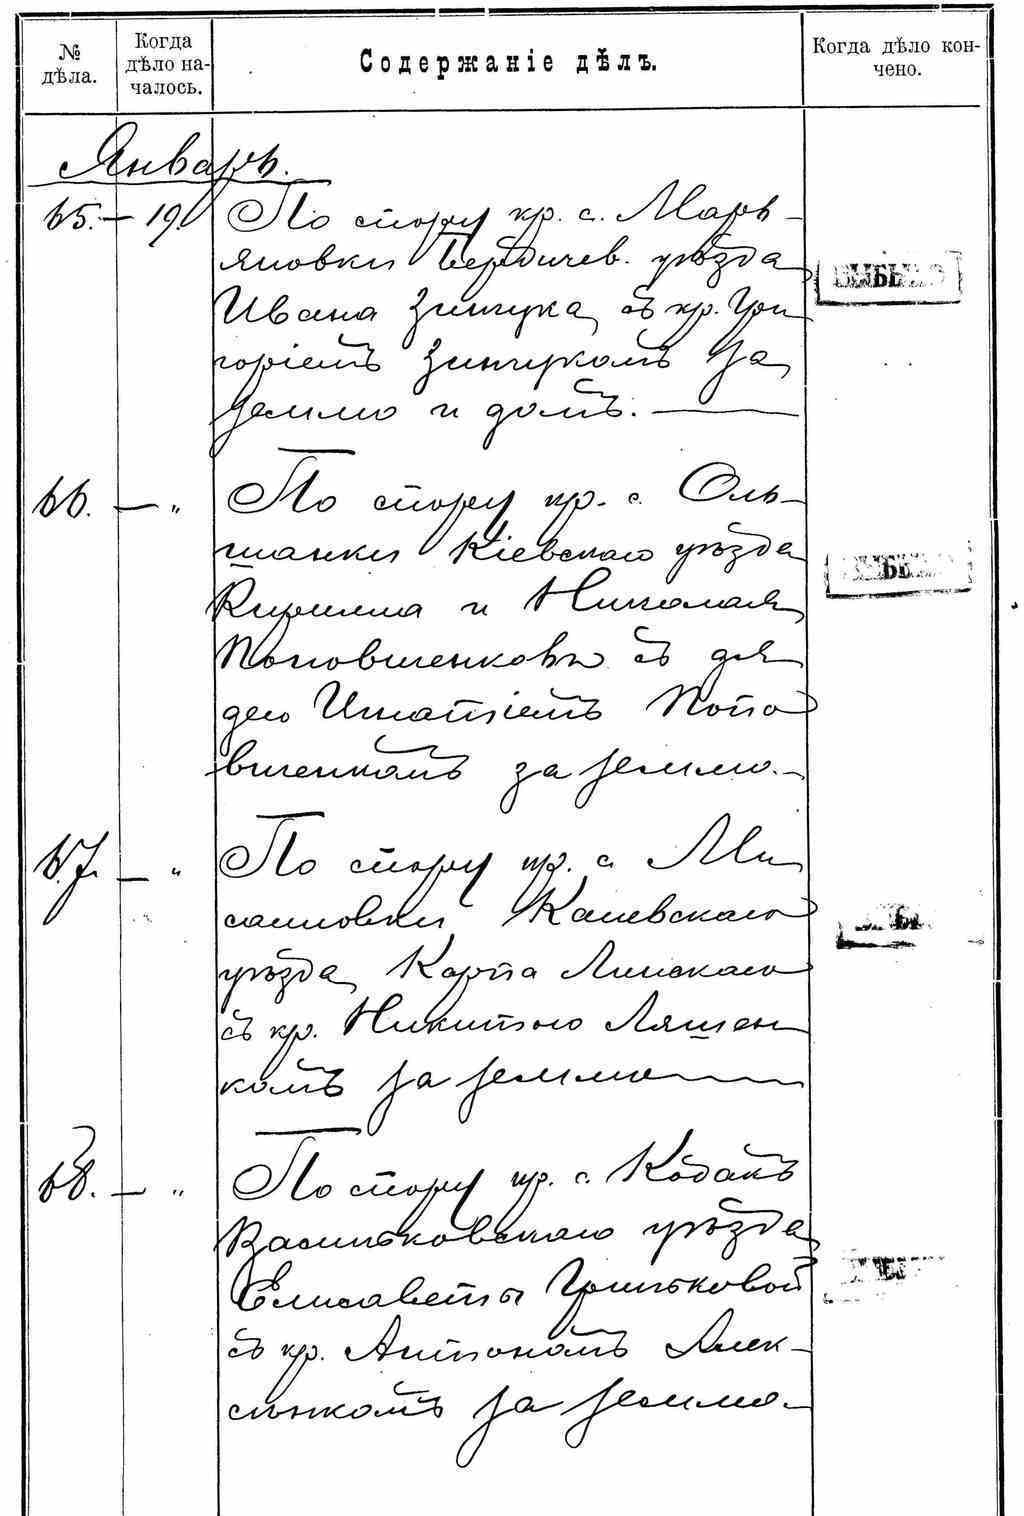 №
дѣла.
Когда
дѣло на-
чалось.
Содержаніе дѣлъ.
Когда дѣло кон-
чено.
Январь.
65. — 19.
По спору кр. с. Марь-
яновки Бердичев. уѣзда
Ивана Зинчука съ кр. Гри
горіемъ Зинчукомъ за
землю и домъ. —
66. — „
По спору кр. с. Оль-
шанки Кіевскаго уѣзда
Кирилла и Николая
Поповиченковъ съ дя
дею Игнатіемъ Попо
виченкомъ за землю. -
67. — „
По спору кр. с. Ми
саиловки Каневскаго
уѣзда Карпа Линскаго
съ кр. Никитою Ляшен
комъ за землю —
68. — „
По спору кр. с. Кодакъ
Васильковскаго уѣзда
Елисаветы Гриньковой
съ кр. Антономъ Алек-
сѣнкомъ за землю. -